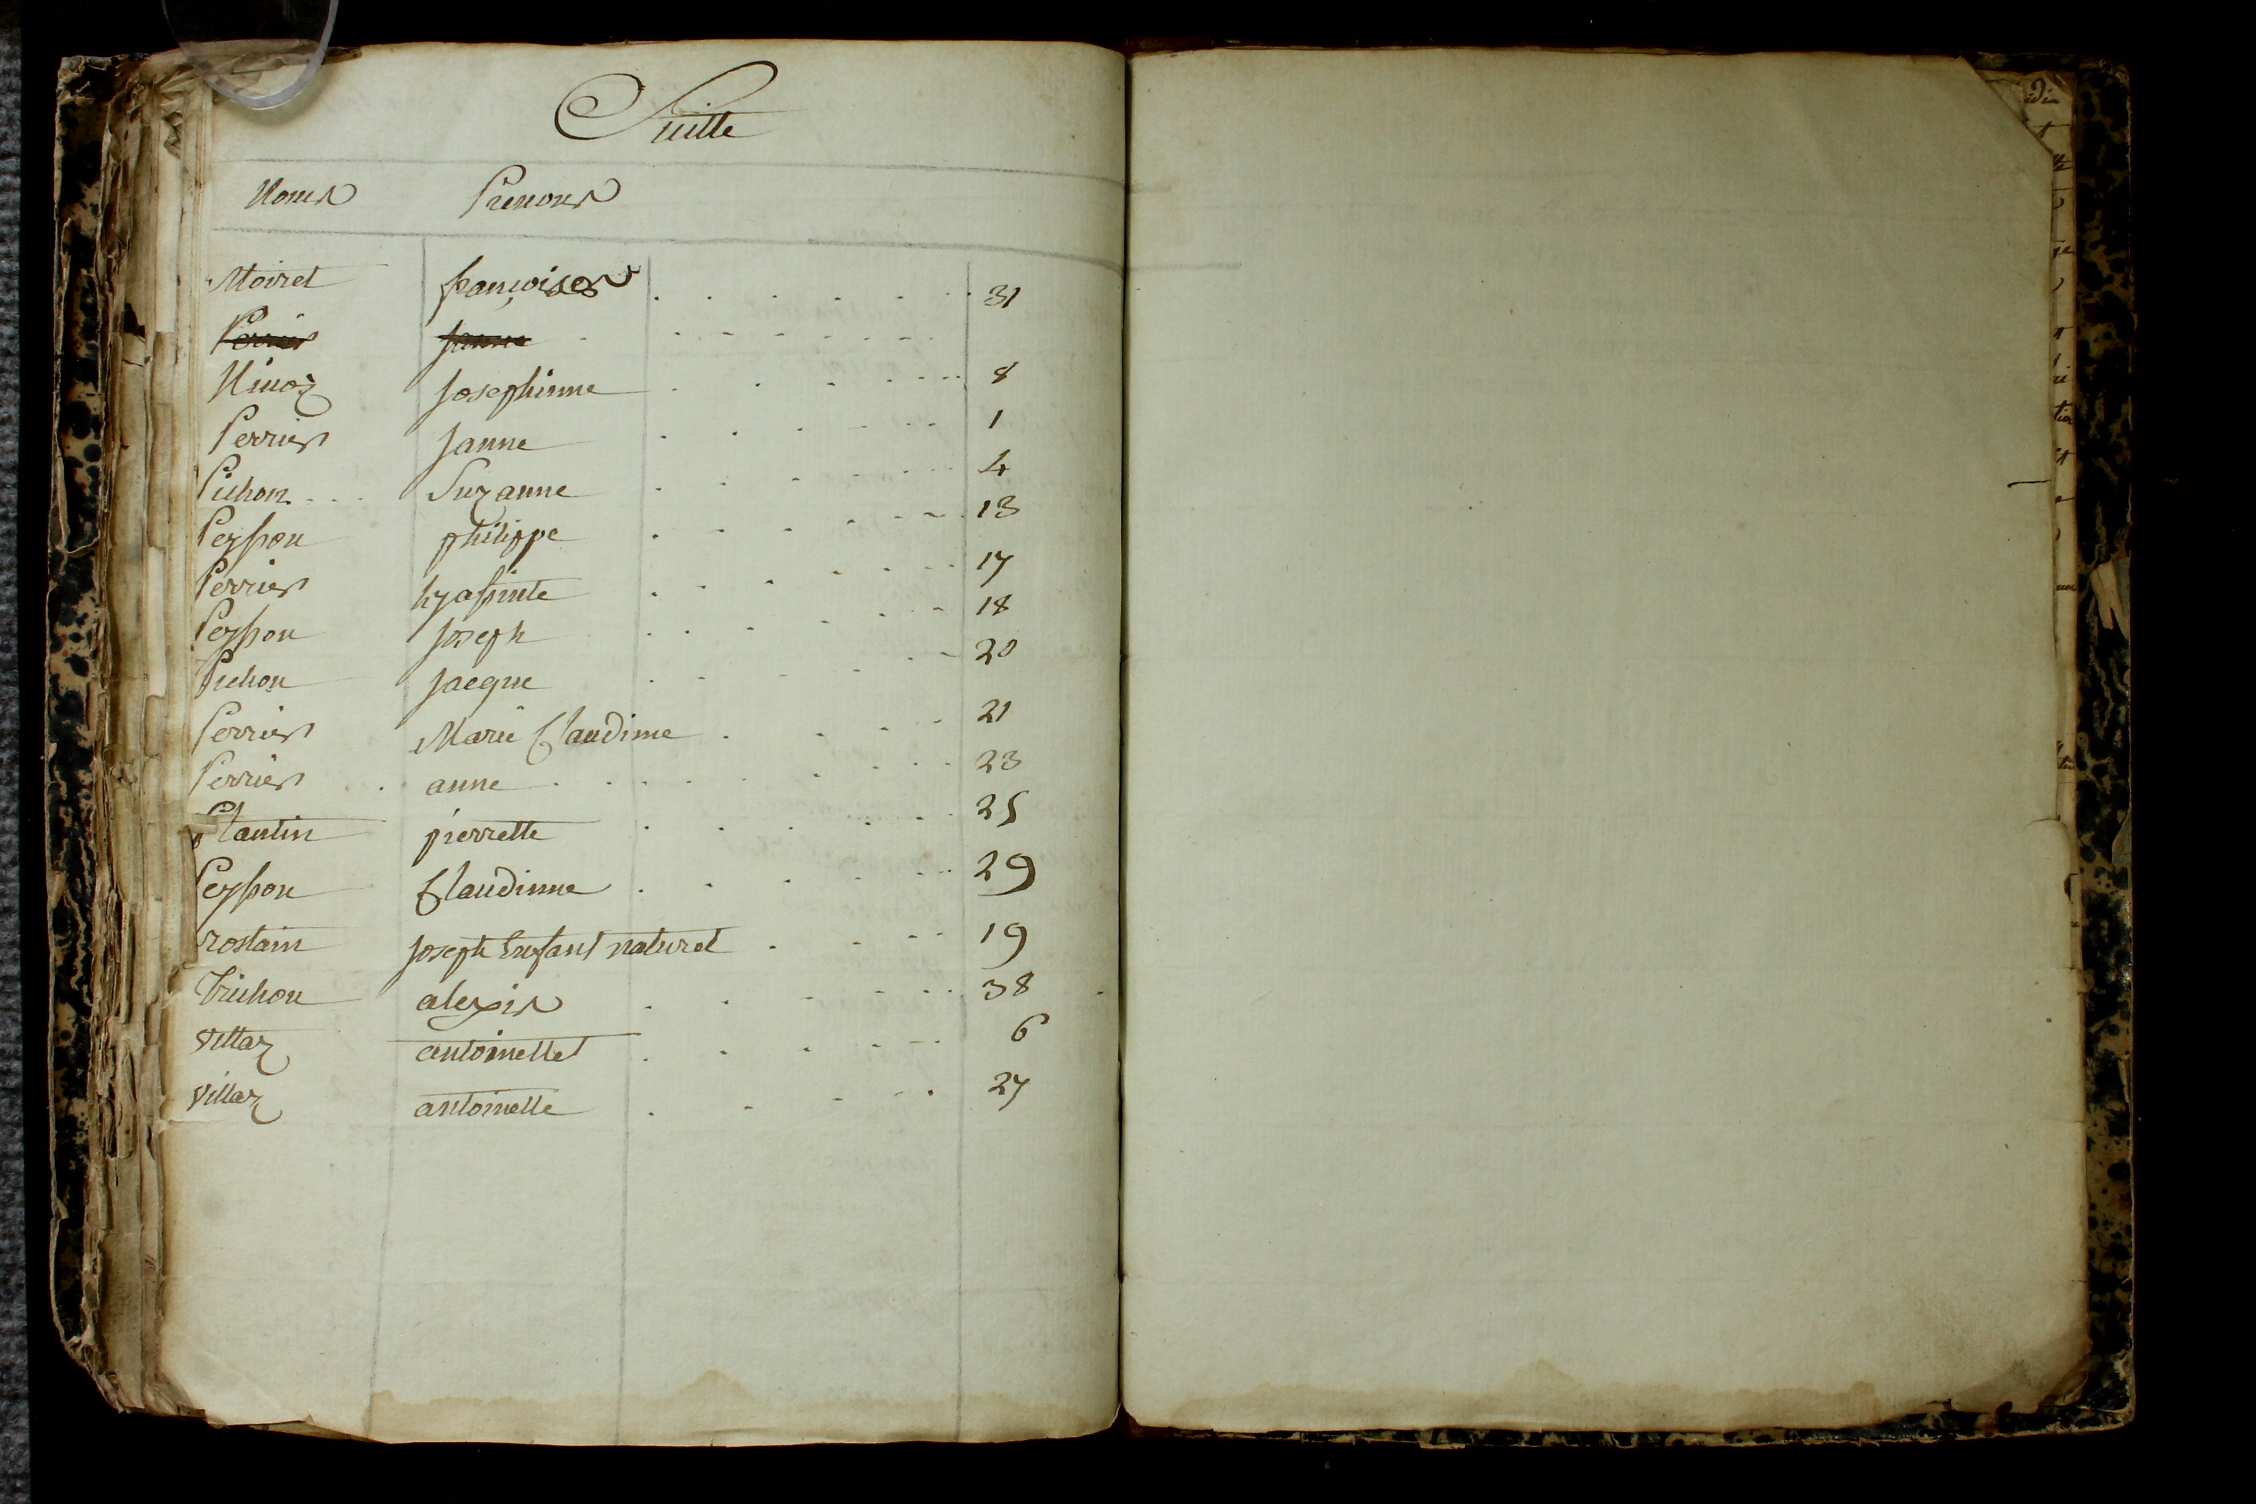 Suitte
Noms Prenoms
Moiret françoises 31
Perrier Janne
Ninoz Josephinne 8
Perrier Janne 1
Pichon Suzanne 4
Peysson philippe 13
Perrier hyassinte 17
Peysson Joseph 18
Pichon Jacque 20
Perrier Marie Claudinne 21
Perrier anne 23
plantin pierrette 25
Peysson Claudinne 29
rostain Joseph Enfant naturel 19
Trichon alexis 38
Villaz antoinette 6
Villaz antoinette 27